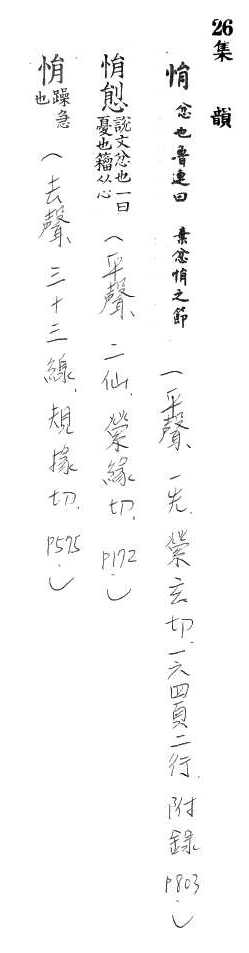 26集 韻
悁 忿也魯連曰 棄忿悁之節 (平聲、一先、縈玄切、一六四頁二行、附錄 P803.)
悁 㥐 說文忿也一曰憂也籀从心 (平聲、二仙、縈緣切、P172.)
悁 躁急也 (去聲、三十三線、規掾切、P575.)